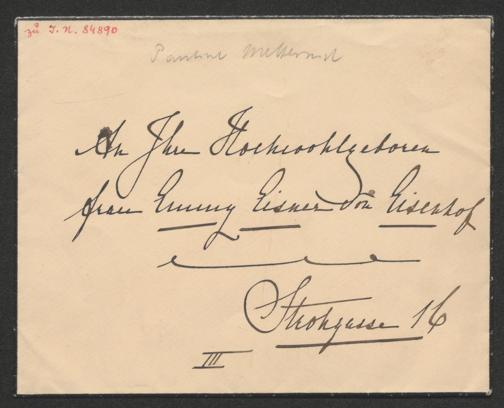 zu I. N. 84890
Pauline Metternich
An Ihre Hochwohlgeboren
Frau Emmy Eisner von Eisenhof
Strohgasse 16
III